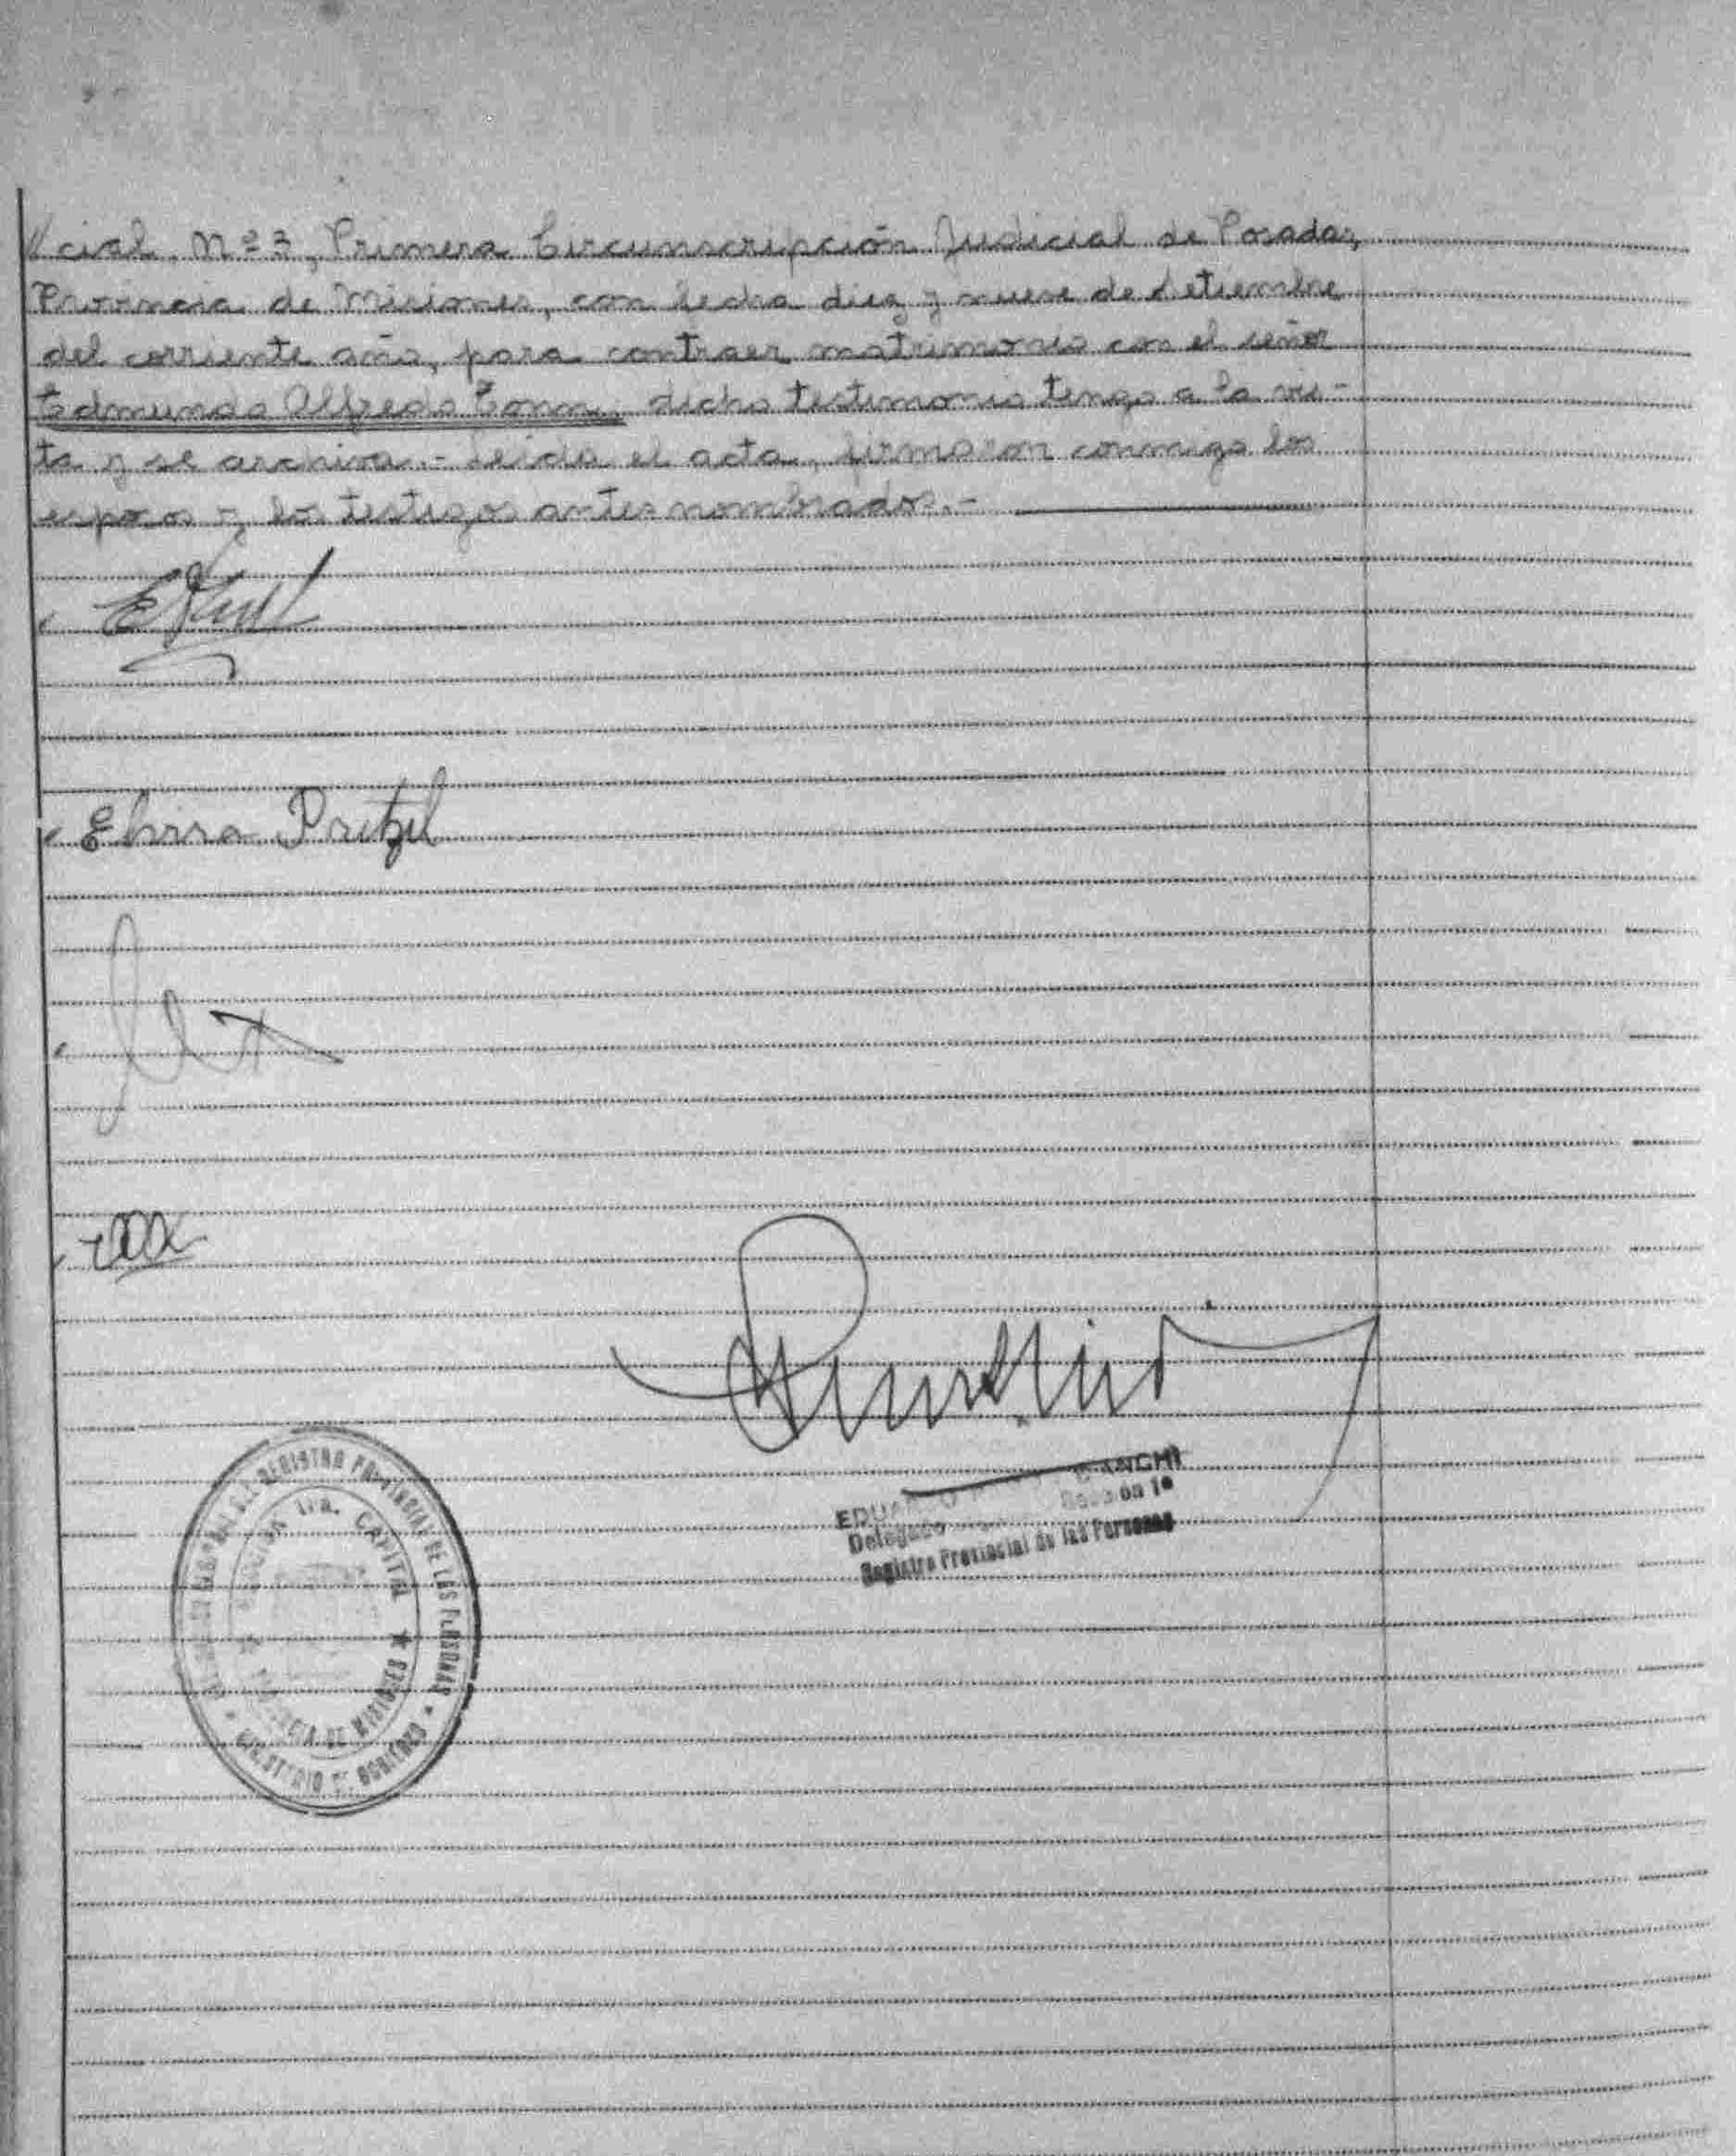 //cial, Nº 3, Primera Circunscripción Judicial de Posadas,
Provincia de Misiones, con fecha diez y nueve de setiembre
del corriente año, para contraer matrimonio con el señor
Edmundo Alfredo dicho testimonio tengo a la vis-
ta y se archiva.- Leida el acta, firmaron conmigo los
esposos y los testigos antes nombrados.-
Elvira Pretzel
BIANCHI
Delegado Sección 1ª
Registro Provincial de las Personas
REGISTRO PROVINCIAL DE LAS PERSONAS
MINISTERIO DE GOBIERNO
1ra. CAPITAL
PROVINCIA DE MISIONES